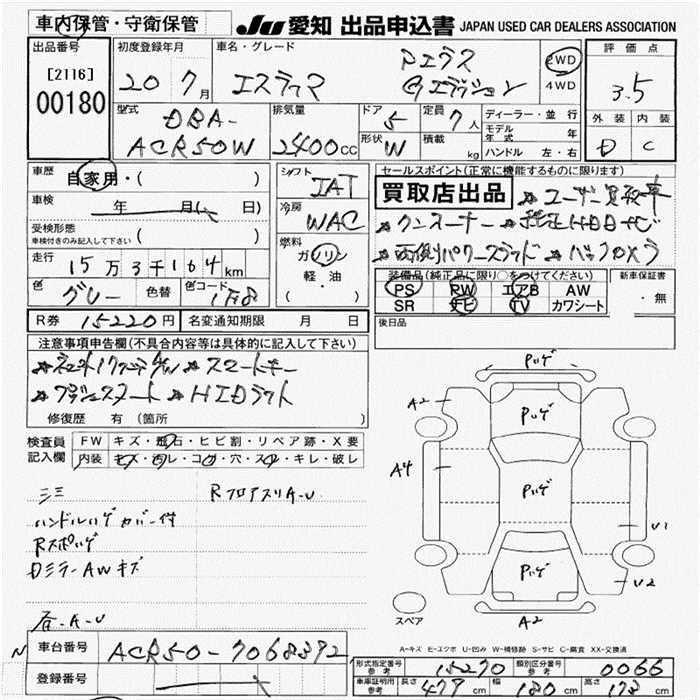 車内保管・守衛保管
JU 愛知 出品申込書 JAPAN USED CAR DEALERS ASSOCIATION
出品番号
[2116]
00180
初度登録年月
20 7月
車名・グレード
エスティマ
アエラス
Gエディション
2WD
4WD
評価点
3.5
外装 内装
D C
型式
DBA-
ACR50W
排気量
2400cc
ドア 5
形状 W
定員 7人
積載 kg
ディーラー・並行
モデル年式 年
ハンドル 左・右
車歴
自家用・( )
車検 年 月( 日)
受検形態
車検付きのみ記入して下さい ( )
走行
15万3千164km
色 グレー 色替 色コード 1F8
シフト IAT
冷房 WAC
燃料
ガソリン
軽・油
( )
セールスポイント(正常に機能するものに限ります)
買取店出品 ★ユーザー買取車
★ワンオーナー ★純正HDDナビ
★両側パワースライド ★バックカメラ
装備品(純正品に限り○をつけてください)
PS PW エアB AW
SR ナビ TV カワシート
新車保証書
・無
R券 15220円 名変通知期限 月 日
後日品
注意事項申告欄(不具合内容等は具体的に記入して下さい)
★スマートキー
★プッシュスタート ★HIDライト
修復歴 有 (箇所 )
検査員
記入欄
FW キズ・飛石・ヒビ割・リペア跡・X要
内装 キズ・汚レ・コゲ・穴・スレ・キレ・破レ
ミミ RフロアスリA-U
ハンドルハゲ カバー付
Rスポハゲ
DミラーAWキズ
各-A-U
Pハゲ
A2
Pハゲ
A4
Pハゲ
U1
Pハゲ
U2
A2
スペア
A-キズ E-エクボ U-凹み W-補修跡 S-サビ C-腐食 XX-交換済
N
車台番号 ACR50-7068372
登録番号
形式指定番号 参考 15270 類別区分番号 参考 0066
車庫証明用 参考 長さ 479cm 幅 180cm 高さ 173cm